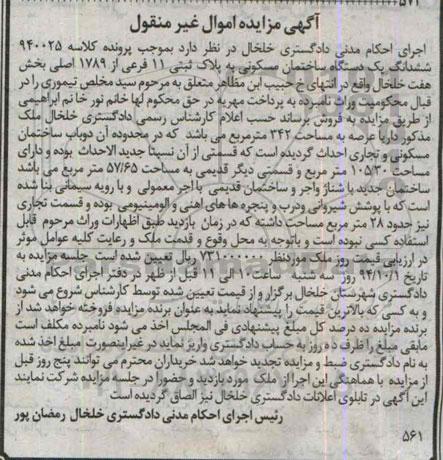 آگهی مزایده اموال غیر منقول
اجرای احکام مدنی دادگستری خلخال در نظر دارد بموجب پرونده کلاسه ۹۴۰۰۲۵
ششدانگ یک دستگاه ساختمان مسکونی به پلاک ثبتی ۱۱ فرعی از ۱۷۸۹ اصلی بخش
هفت خلخال واقع در انتهای خ حبیب ابن مظاهر متعلق به مرحوم سید مخلص تیموری را در
قبال محکومیت وراث نامبرده به پرداخت مهریه در حق محکوم لها خانم نور خا نم ابراهیمی
از طریق مزایده به فروش برساند حسب اعلام کارشناس رسمی دادگستری خلخال ملک
مذکور دارا عرصه به مساحت ۳۴۲ مترمربع می باشد که در محدوده آن دوباب ساختمان
مسکونی و تجاری احداث گردیده است که قسمتی از آن نسبتا جدید الاحداث بوده و دارای
۱۰۵/۳۰ متر مربع و قسمتی دیگر قدیمی به مساحت ۵۷/۶۵ متر مربع می باشد
ساختمان جدید با شناژ واجر و ساختمان قدیمی با اجر معمولی و با رویه سیمانی بنا شده
است که با پوشش شیروانی ودرب و پنجره ها های اهنی و الومینیومی بوده و قسمت تجاری
نیز حدود ۲۸ متر مربع مساحت داشته که در زمان بازدید طبق اظهارات وراث مرحوم قابل
استفاده کسی نبوده است و باتوجه به محل وقوع و قدمت ملک و رعایت کلیه عوامل موثر
در ارزیابی قیمت روز ملک موردنظر ۷۳۱۰۰۰۰۰۰ ریال تعیین شده است جلسه مزایده به
تاریخ ۹۴/۱۰/۱ روز سه شنبه ساعت ۱۰ الی ۱۱ قبل از ظهر در دفتر اجرای احکام مدنی
دادگستری شهرستان خلخال برگزار و از قیمت تعیین شده توسط کارشناس شروع می شود
و به کسی که بالاترین قیمت را پیشنهاد نماید به عنوان برنده مزایده فروخته خواهد شد از
برنده مزایده ده درصد کل مبلغ پیشنهادی فی المجلس اخذ می شود نامبرده مکلف است
مابقی مبلغ را ظرف ده روز به حساب دادگستری واریز نماید در غیراینصورت مبلغ اخذ شده
به نام دادگستری ضبط و مزایده تجدید خواهد شد خریداران محترم می توانند پنج روز قبل
از مزایده با هماهنگی این اجرا از ملک مورد بازدید و حضورا در جلسه مزایده شرکت نمایند
این آگهی در تابلوی اعلانات دادگستری خلخال نیز الصاق گردیده است
رئیس اجرای احکام مدنی دادگستری خلخال رمضان پور
۵۶۱